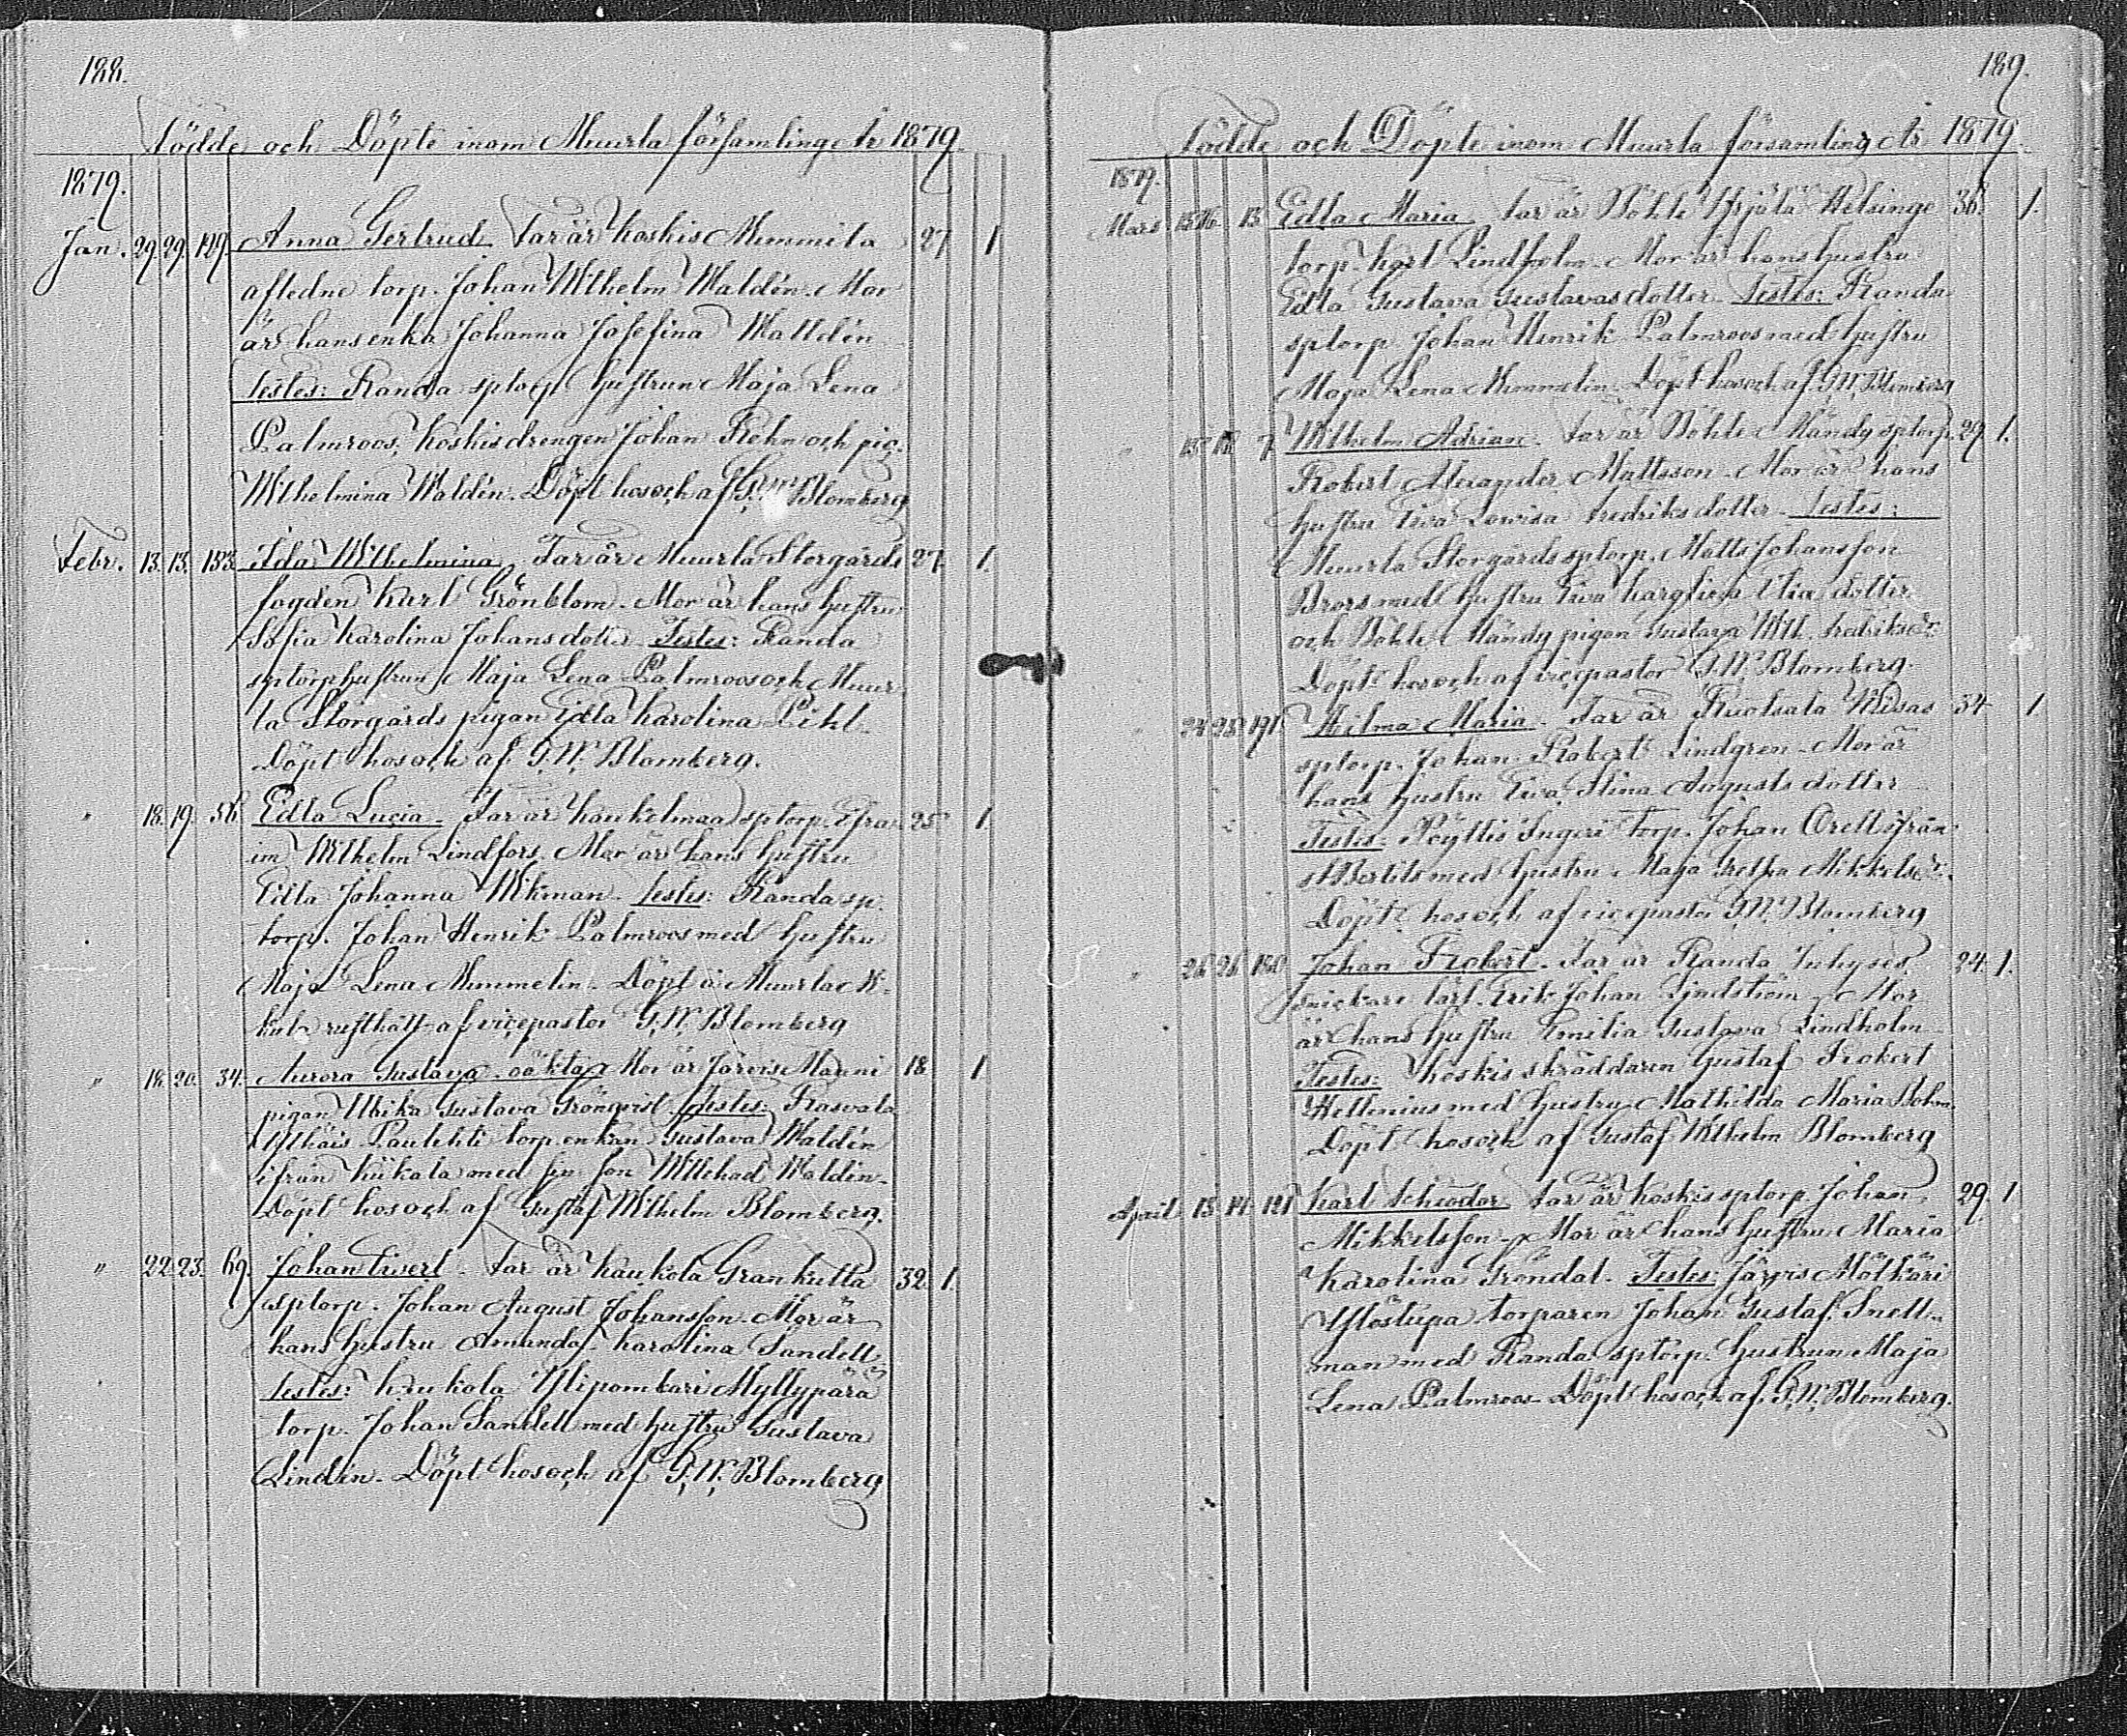 188.
Födde och Döpte inom Muurla församling År 1879.
1879.
Jan. 29. 29. 129. Anna Gertrud. Far är Koskis Mimmila 27 1
afledne torp. Johan Wilhelm Waldén. Mor
är hans enka Johanna Josefina Walldén
Testes: Randa sptorp hustrun Maja Lena
Palmroos, Koskis drengen Johan Rehn och pig.
Wilhelmina Waldén. Döpt hos och af G. W. Blomberg
Febr. 13. 13. 153. Ida Wilhelmina. Far är Muurla Storgårds 27. 1.
fogden Karl Grönblom. Mor är hans hustru
Sofia Karolina Johansdoter. Testes: Randa
sptorp hustrun Maja Lena Palmroos och Muur-
la Storgårds pigan Edla Karolina Pihl.
Döpt hos och af G. W. Blomberg.
" 18. 19. 56. Edla Lucia. Far är Kaukelmaa sptorp. Efra- 25 1.
im Wilhelm Lindfors. Mor är hans hustru
Edla Johanna Wikman. Testes: Randa sp.
torp. Johan Henrik Palmroos med hustru
Maja Lena Mimmelin. Döpt i Muurla
rusthåll af vicepastor G. W. Blomberg
" 18. 20. 34. Aurora Gustava. oäkta. Mor är Järvis Manni 18. 1
pigan Ulrika Gustava Grönqvist. Testes: Rasvala
Ylhäis Paulehti torp. enkan Gustava Waldén
ifrån Kiikala med sin son Willehad Waldén.
Döpt hos och af Gustaf Wilhelm Blomberg.
" 22. 23. 69. Johan Evert. Far är Kaukola Grankulla 32. 1.
sptorp. Johan August Johansson. Mor är
hans hustru Amanda Karolina Sandell.
Testes: Kaukola Ylipomkari Myllypärä
torp. Johan Sandell med hustru Gustava
Lindin. Döpt hos och af G. W. Blomberg
189.
Födde och Döpte inom Muurla församling År 1879.
1879.
Mars 15 16. 13 Edla Maria. Far är Böhle Yrjälä Helsinge 36. 1.
torp. Karl Lindholm. Mor är hans hustru
Edla Gustava Gustavasdotter. Testes: Randa
sptorp Johan Henrik Palmroos med hustru
Maja Lena Mimmelin. Döpt hos och af G. W. Blomberg
" 15 16 7. Wilhelm Adrian. Far är Böhle Mändy sptorp. 29. 1.
Robert Alexander Mattsson. Mor är hans
hustru Eva Lovisa Fredriksdotter. Testes:
Muurla Storgårds sptorp. Matts Johansson
Brors med hustru Eva Karolina dotter
och Böhle Mändy pigan Gustava Wilh. Fredriksdr.
Döpt hos och af vicepastor G. W. Blomberg.
" 24 25 191. Hilma Maria. Far är Ruotsala Widsas 34 1.
sptorp. Johan Robert Lindgren. Mor är
hans hustru Eva Stina Augustsdotter
Testes: Pöyttis torp. Johan Orell ifrån
St Bertils med hustru Maja Greta Mikkelsdr.
Döpt hos och af vicepastor G. W. Blomberg
" 26 28. 180 Johan Robert. Far är Randa Juhyses 24. 1.
snickare lärl. Erik Johan Lindström. Mor
är hans hustru Emilia Gustava Lindholm
Testes: Koskis skräddaren Gustaf Robert
Hellenius med hustru Mathilda Maria Bohm.
Döpt hos och af Gustaf Wilhelm Blomberg
April 13. 14. 121 Karl Theodor. Far är Koskis sptorp. Johan 29. 1
Mikkelsson. Mor är hans hustru Maria
Karolina Gröndal. Testes: Järvis Mölkäri
Ylöstupa torparen Johan Gustaf Snell-
man med Randa sptorp. hustrun Maja
Lena Palmroos. Döpt hos och af G. W. Blomberg.